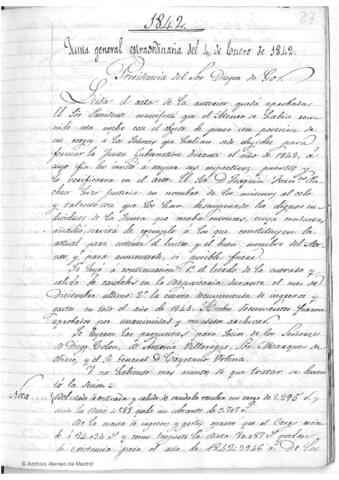 1842.
Junta general extraordinaria del 4 de Enero de 1842.
Presidencia del Sor Duque de
Leida el acta de la anterior quedó aprobada.
El Sor Presidente manifestó que el Ateneo se había
reunido esta noche con el objeto de poner en posesion de
sus cargos á los Señores que habían sido elegidos para
formar la Junta Gubernativa durante el año de 1842, á
cuyo fin les invitó á ocupar sus respectivos puestos y
lo verificaron en el acto. El Sor D. Joaquin
hizo justicia en nombre de la misma al celo
y talento con que los han desempeñado los dignos in-
dividuos de la Junta que acaba entonces, cuya conducta
añadió, servirá de ejemplo á los que constituyen la
actual para sostener el lustre y el buen nombre del Ate-
neo, y para aumentarle, si posible fuese.
Se leyó á continuacion: 1º el estado de la entrada y
salida de caudales en la depositaría durante el mes de
Diciembre ultimo: 2º la cuenta documentada de ingresos y
gastos en todo el año de 1841. Ambos documentos fueron
aprobados por unanimidad y
Se leyeron las propuestas para Socios de los Señores
D. Diego Colon, D. Antonio
y el Sr General D. Cayetano
Y no habiendo mas asunto de que tratar se levan-
tó la Sesion.
Nota.
Del estado de entrada y salida de caudales resulta un cargo de 8.295 rs y
una Data 4.588 quedó un sobrante de 3.707 rs
De la cuenta de ingresos y gastos que el Cargo
á 24.034 rs y como importe la Data 20.087 rs quedan
de existencia para el año de 1842: 3.946 rs De los
© Archivo Ateneo de Madrid